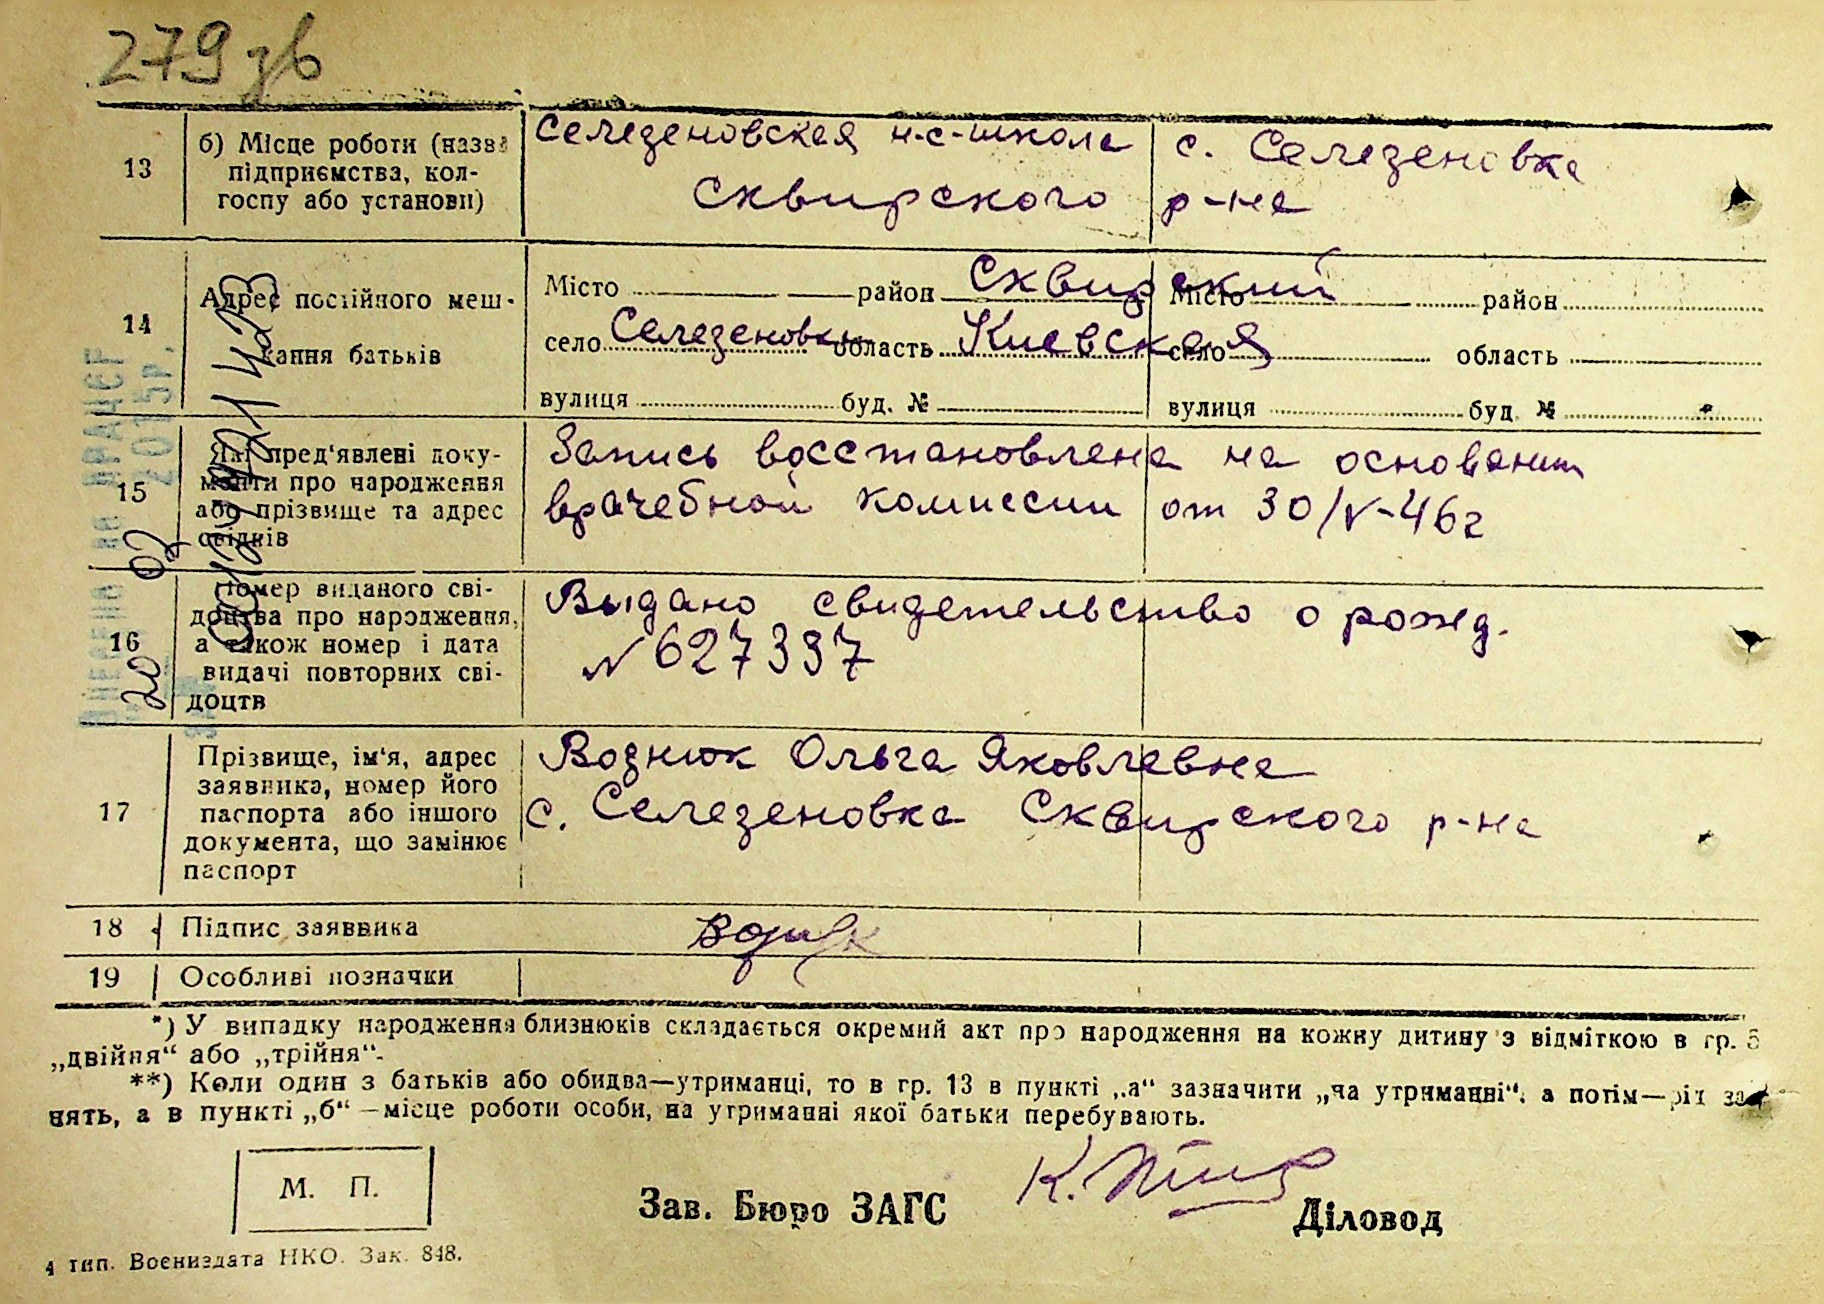 279 зв
13 б) Місце роботи (назва підприємства, колгоспу або установи)
Селезеновская н-с-школа с. Селезеновка
Сквирского р-на
14 Адрес постійного мешкання батьків
Місто район Сквирский Місто район
село Селезеновка область Киевская село область
вулиця буд. № вулиця буд. №
15 Які пред'явлені документи про народження або прізвище та адрес свідків
Запись восстановлена на основании
врачебной комиссии от 30/V-46г
16 Номер виданого свідоцтва про народження, а також номер і дата видачі повторних свідоцтв
Выдано свидетельство о рожд.
N 627337
17 Прізвище, ім'я, адрес заявника, номер його паспорта або іншого документа, що замінює паспорт
Воднюк Ольга Яковлевна
с. Селезеновка Сквирского р-на
18 Підпис заявника
19 Особливі позначки
*) У випадку народження близнюків складається окремий акт про народження на кожну дитину з відміткою в гр. 5
„двійня“ або „трійня“.
**) Коли один з батьків або обидва—утриманці, то в гр. 13 в пункті „а“ зазначити „на утриманні“, а потім—рід за-
нять, а в пункті „б“—місце роботи особи, на утриманні якої батьки перебувають.
М. П.
Зав. Бюро ЗАГС Діловод
4 тип. Воєниздата НКО. Зак. 848.